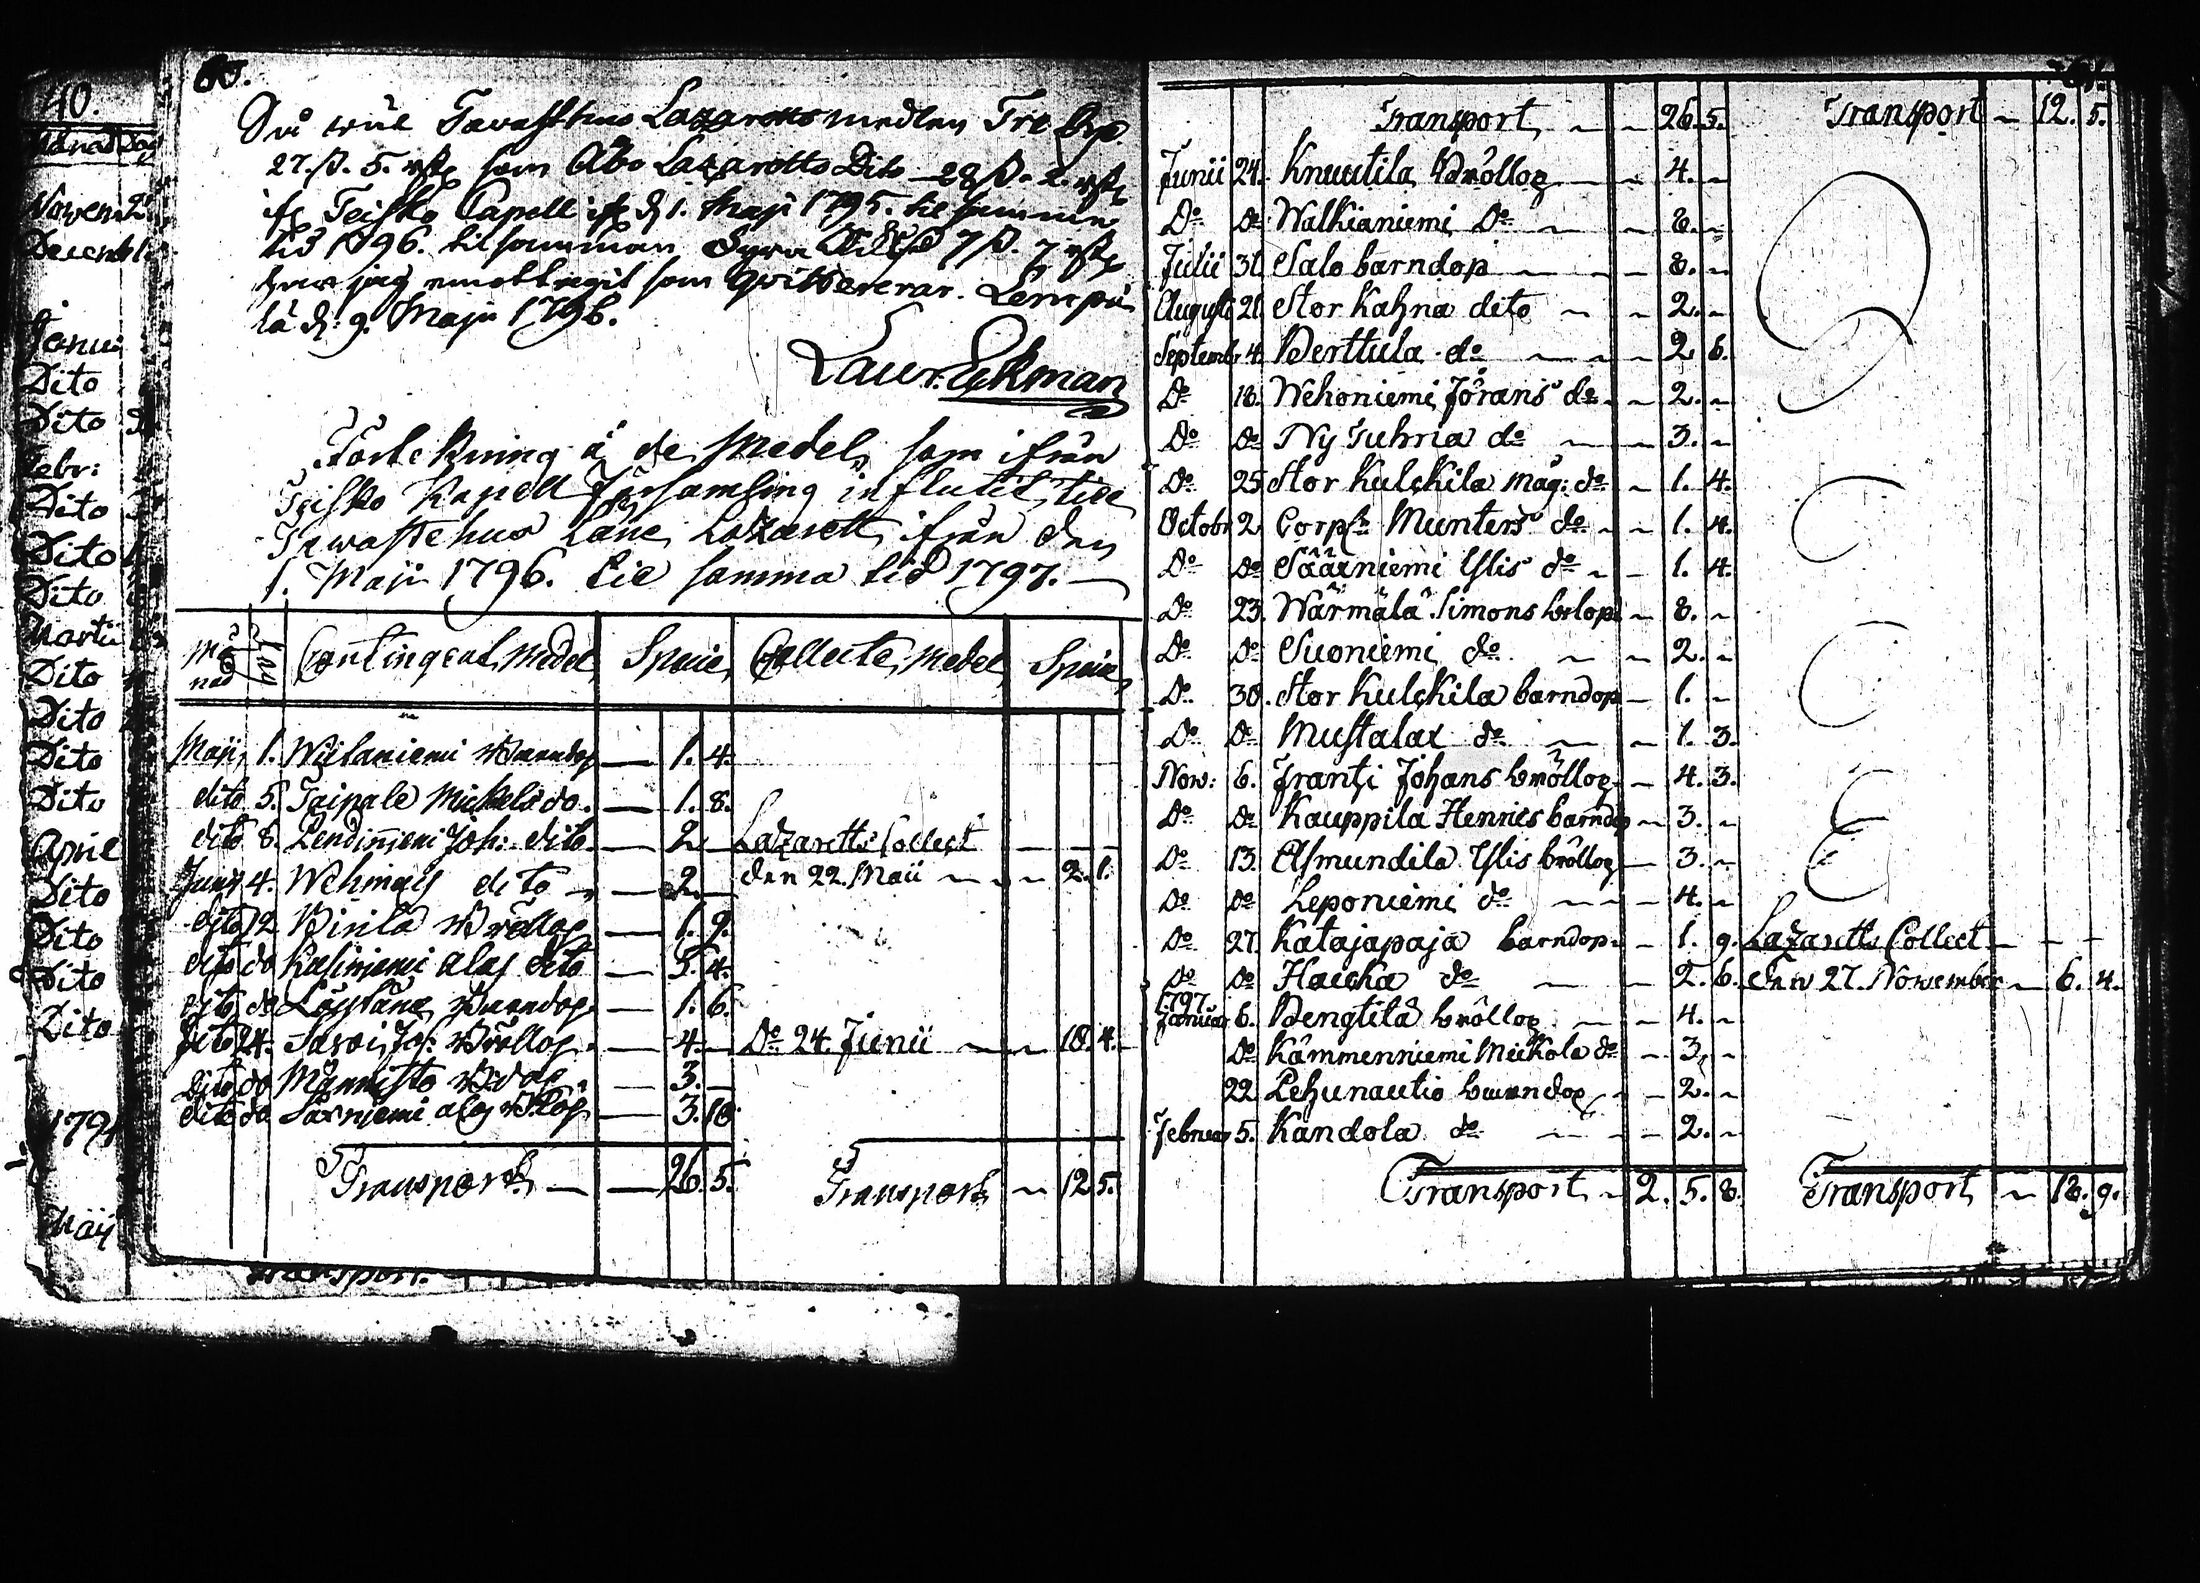 40.
Månad Dag
Novem 2
Decemb
Janua
Dito
Dito
Febr:
Dito
Dito
Dito
Martii
Dito
Dito
Dito
Dito
April
Dito
Dito
Dito
Dito
179
Maij
Transport.
60.
Så wäl Tavasthus Lazaretts medlen Tre Rxp.
27.ß. 5. rst som Åbo Lazaretts Dito 28 ß. 2. rst
if Teisko Capell if d 1. Maji 1795. til samma
tid 1796. tilsamman Fyra Rd 7 ß. 7 rst
har jag emottagit som qvitterar. Lempä
lä d: 9. Maji 1796.
Laur. Ekman
Förtekning å de Medel som ifrån
Teisko Kapell Församling influtit, til
Tawastehus Läns Lazarett, ifrån den
1. Maji 1796. til samma tid 1797.
Månad Dag Contingent, Medel Specie, Collecte, Medel, Specie,
Maji, 1. Wiitaniemi Barndop — 1. 4.
dito 5. Taipale Mickels do. — 1. 8.
dito 8. Lendiniemi Joh: dito — 2 — Lazaretts Collect — —
Junii 4. Wehmais dito — 2 — den 22. Maii — 2. 1.
dito 12 Pirilä Bröllop — 1. 9.
dito do Kasiniemi alas dito — 5. 4.
dito do Löytäne Barndop — 1. 6.
Dito 24. Sarvi Joh: Bröllop — 4. — Do 24. Junii — 10. 4.
Dito do Männistö Bdop. — 3. —
dito do Särniemi alas Blop — 3. 10.
Transport — 26. 5. Transport — 12 5.
61.
Transport — 26. 5. Transport — 12. 5.
Junii 24. Knuutila Bröllop — 4. —
Do Do Walkianiemi Do — 8. —
Julii 31 Salo barndop — 8. —
Augusti 21. Stor Kahna dito — 2. —
Septemb 4. Perttula do — 2 6.
Do 18. Wehoniemi Jörans do — 2. —
Do Do Ny Tuhria do — 3. —
Do 25 Stor Kulckila Mag: do — 1. 4.
Octobr 2. Corpr Munters do — 1. 4.
Do Do Säärniemi Ylis do — 1. 4.
Do 23. Wärmälä Simons brlop — 8. —
Do Do Suoniemi do — 2. —
Do 30. Stor Kulckila barndop — 1. —
Do Do Mustalax do — 1. 3.
Now: 6. Frantsi Johans bröllop — 4. 3.
Do Do Kauppila Hennes barndop — 3. —
Do 13. Asmundila Ylis bröllop — 3. —
Do Do Leponiemi do — 4. —
Do 27. Katajapaja barndop — 1. 9. Lazaretts Collect — —
Do Do Haicka do — 2. 6. den 27. November — 6. 4.
1797.
Januar 6. Bengtilä bröllop — 4. —
Do Kämmenniemi Mickola do — 3. —
22. Lehunautio barndop — 2. —
Februar 5. Kandola do — 2. —
Transport — 2. 5. 8. Transport — 18. 9.